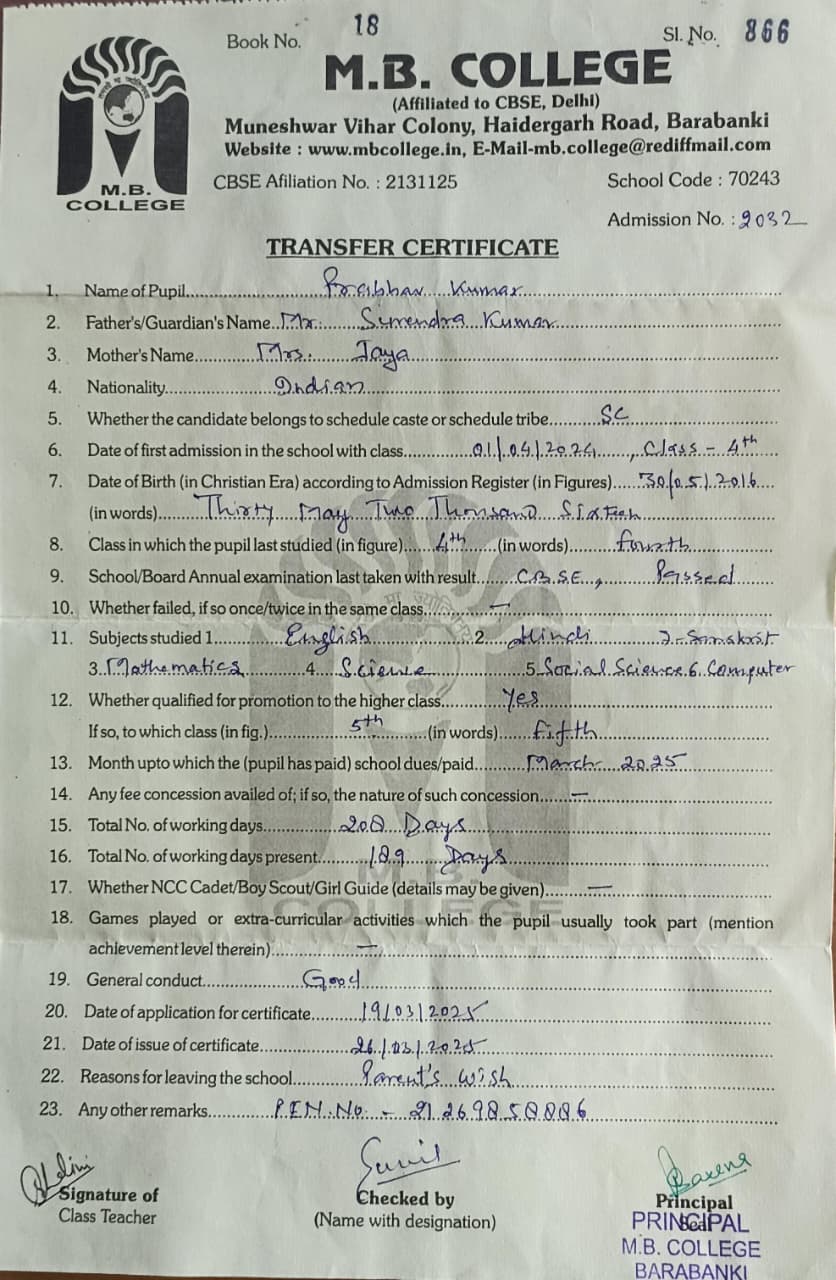 Book No. 18 Sl. No. 866
M.B. COLLEGE
(Affiliated to CBSE, Delhi)
Muneshwar Vihar Colony, Haidergarh Road, Barabanki
Website : www.mbcollege.in, E-Mail-mb.college@rediffmail.com
M.B.
COLLEGE
CBSE Afiliation No. : 2131125 School Code : 70243
Admission No. : 2032
TRANSFER CERTIFICATE
1. Name of Pupil Prabhav Kumar
2. Father's/Guardian's Name Mr. Surendra Kumar
3. Mother's Name Mrs. Jaya
4. Nationality Indian
5. Whether the candidate belongs to schedule caste or schedule tribe SC
6. Date of first admission in the school with class 01/04/2024, Class - 4th
7. Date of Birth (in Christian Era) according to Admission Register (in Figures) 30/05/2016
(in words) Thirty May Two Thousand Sixteen
8. Class in which the pupil last studied (in figure) 4th (in words) fourth
9. School/Board Annual examination last taken with result C.B.S.E, Passed
10. Whether failed, if so once/twice in the same class —
11. Subjects studied 1 English 2. Hindi 7-Sanskrit
3. Mathematics 4. Science 5. Social Science 6. Computer
12. Whether qualified for promotion to the higher class Yes
If so, to which class (in fig.) 5th (in words) Fifth
13. Month upto which the (pupil has paid) school dues/paid March 2025
14. Any fee concession availed of; if so, the nature of such concession —
15. Total No. of working days 208 Days
16. Total No. of working days present 189 Days
17. Whether NCC Cadet/Boy Scout/Girl Guide (details may be given) —
18. Games played or extra-curricular activities which the pupil usually took part (mention
achievement level therein) —
19. General conduct Good
20. Date of application for certificate 19/03/2025
21. Date of issue of certificate 26/03/2025
22. Reasons for leaving the school Parent's wish
23. Any other remarks P.E.N. No. - 21269858886
Sunil
Saxena
Signature of Checked by Principal
Class Teacher (Name with designation) Seal
PRINCIPAL
M.B. COLLEGE
BARABANKI